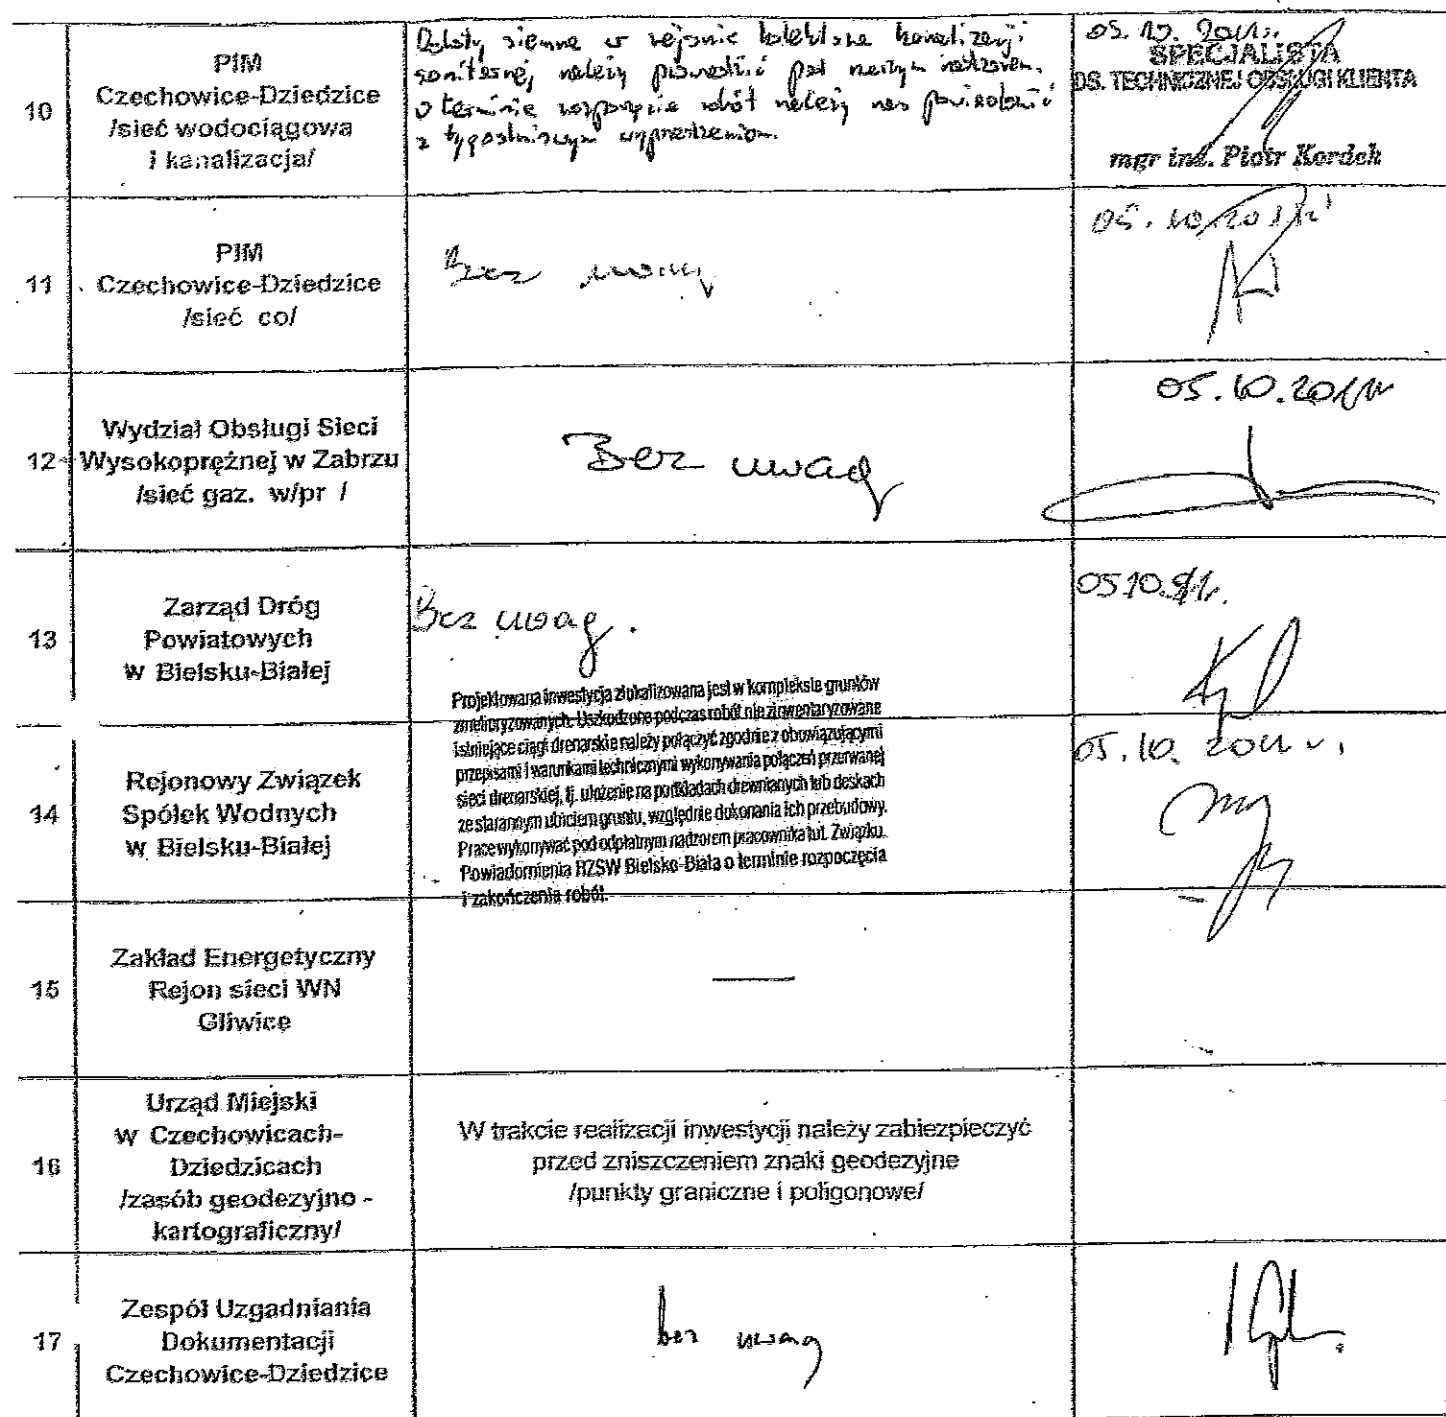 10
PIM
Czechowice-Dziedzice
/sieć wodociągowa
i kanalizacja/
Roboty ziemne w rejonie kolektora kanalizacji
sanitarnej należy prowadzić pod naszym nadzorem.
o terminie rozpoczęcia robót należy nas powiadomić
z tygodniowym wyprzedzeniem.
05.10.2011r.
SPECJALISTA
DS. TECHNICZNEJ OBSŁUGI KLIENTA
mgr inż. Piotr Kordek
11
PIM
Czechowice-Dziedzice
/sieć co/
Bez uwag
05.10.2011r
12
Wydział Obsługi Sieci
Wysokoprężnej w Zabrzu
/sieć gaz. w/pr /
Bez uwag
05.10.2011r
13
Zarząd Dróg
Powiatowych
w Bielsku-Białej
Bez uwag.
05.10.11r.
14
Rejonowy Związek
Spółek Wodnych
w Bielsku-Białej
Projektowana inwestycja zlokalizowana jest w kompleksie gruntów
zmelioryzowanych. Uszkodzone podczas robót nie zinwentaryzowane
i istniejące ciągi drenarskie należy połączyć zgodnie z obowiązującymi
przepisami i warunkami technicznymi wykonywania połączeń przerwanej
sieci drenarskiej, tj. ułożenie na podkładach drewnianych lub deskach
ze starannym ubiciem gruntu, względnie dokonania ich przebudowy.
Prace wykonywać pod odpłatnym nadzorem pracownika tut. Związku.
Powiadomienia RZSW Bielsko-Biała o terminie rozpoczęcia
i zakończenia robót.
05.10.2011 r.
15
Zakład Energetyczny
Rejon sieci WN
Gliwice
16
Urząd Miejski
w Czechowicach-
Dziedzicach
/zasób geodezyjno -
kartograficzny/
W trakcie realizacji inwestycji należy zabiezpieczyć
przed zniszczeniem znaki geodezyjne
/punkty graniczne i poligonowe/
17
Zespół Uzgadniania
Dokumentacji
Czechowice-Dziedzice
bez uwag